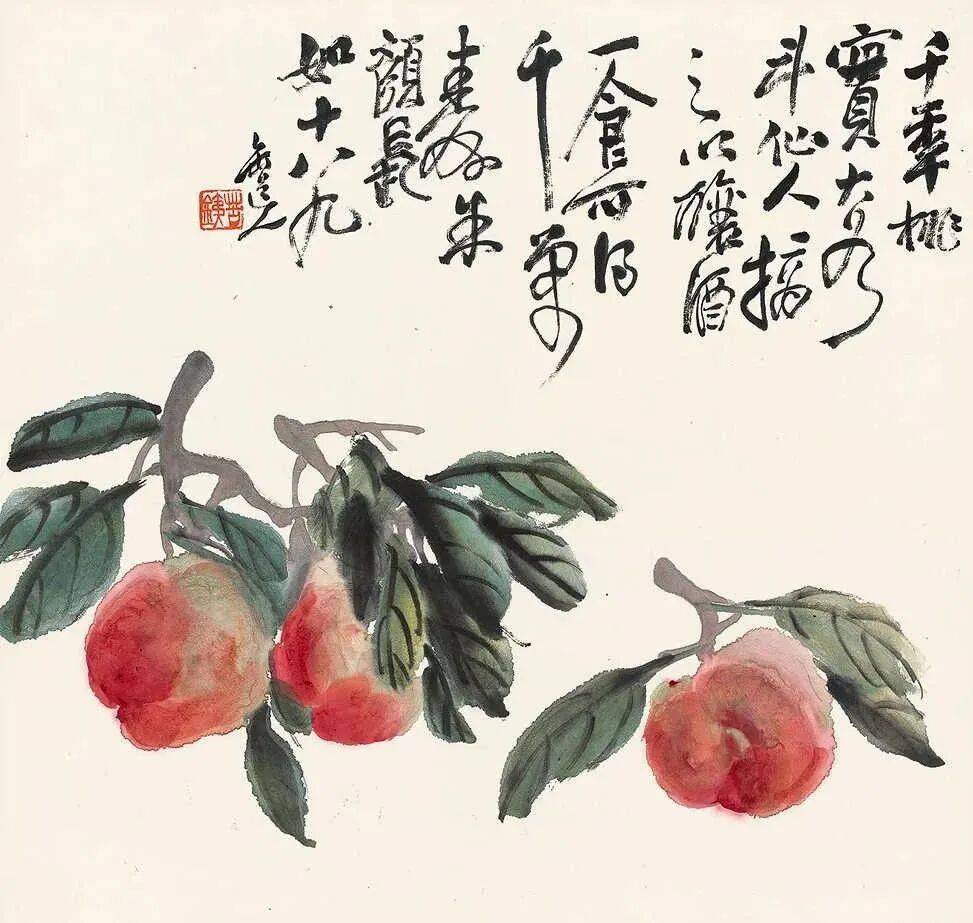 千年桃
實大如
斗仙人摘
之以釀酒
一食可得
千萬
壽朱
顏長
如十八九
苦鐵